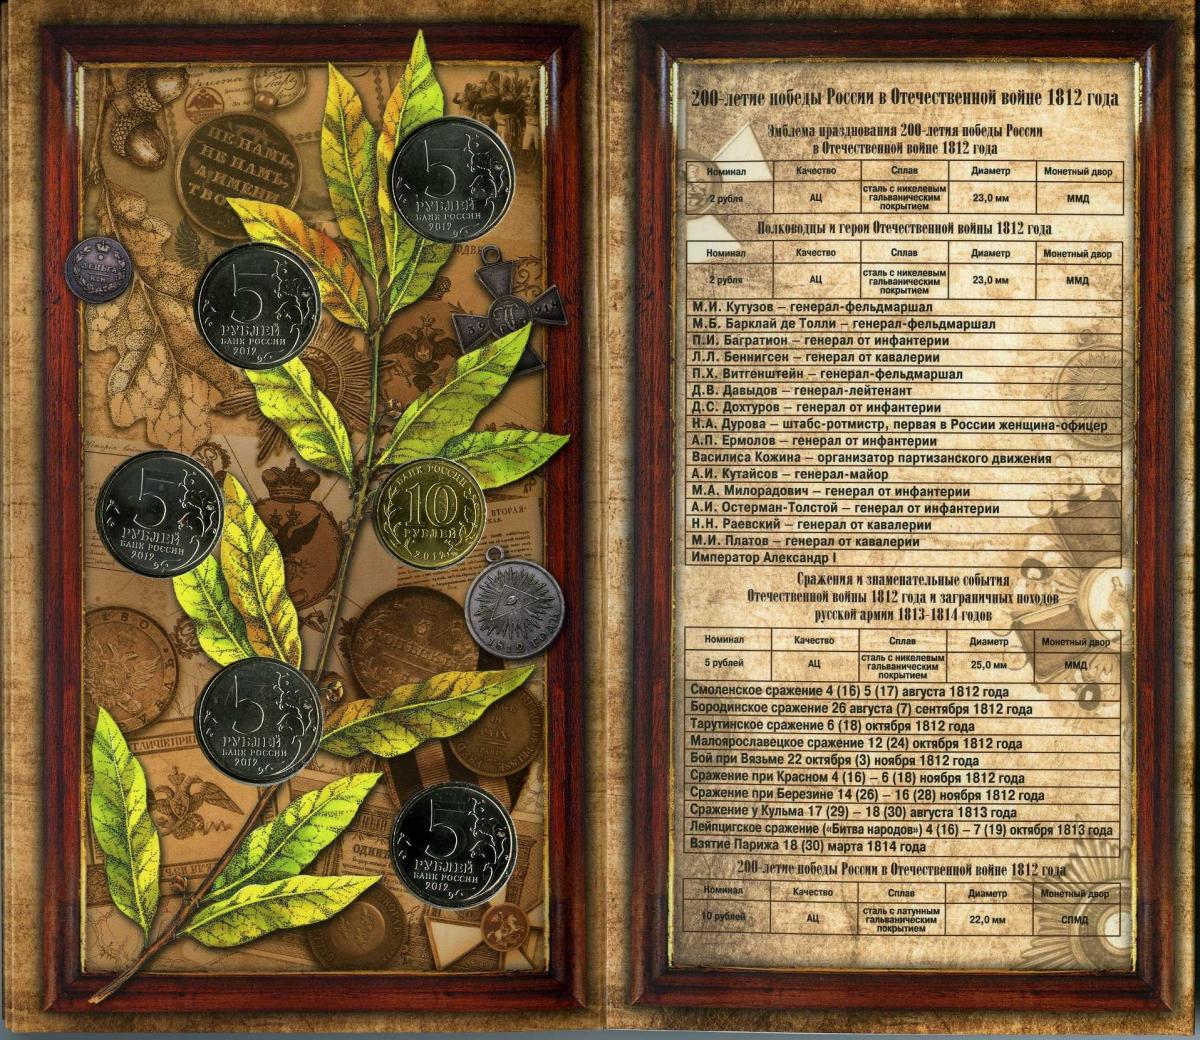 НЕ НАМЪ
НЕ НАМЪ
А ИМЕНИ
ДЕНЬГА
5
РУБЛЕЙ
БАНК РОССИИ
2012
5
РУБЛЕЙ
БАНК РОССИИ
2012
5
РУБЛЕЙ
БАНК РОССИИ
2012
БАНК РОССИИ
10
РУБЛЕЙ
2012
ВТОРАЯ-
1812
5
РУБЛЕЙ
БАНК РОССИИ
2012
DE
PAIX
5
РУБЛЕЙ
БАНК РОССИИ
2012
200-летие победы России в Отечественной войне 1812 года
Эмблема празднования 200-летия победы России
в Отечественной войне 1812 года
Номинал Качество Сплав Диаметр Монетный двор
2 рубля АЦ сталь с никелевым гальваническим покрытием 23,0 мм ММД
Полководцы и герои Отечественной войны 1812 года
Номинал Качество Сплав Диаметр Монетный двор
2 рубля АЦ сталь с никелевым гальваническим покрытием 23,0 мм ММД
М.И. Кутузов – генерал-фельдмаршал
М.Б. Барклай де Толли – генерал-фельдмаршал
П.И. Багратион – генерал от инфантерии
Л.Л. Беннигсен – генерал от кавалерии
П.Х. Витгенштейн – генерал-фельдмаршал
Д.В. Давыдов – генерал-лейтенант
Д.С. Дохтуров – генерал от инфантерии
Н.А. Дурова – штабс-ротмистр, первая в России женщина-офицер
А.П. Ермолов – генерал от инфантерии
Василиса Кожина – организатор партизанского движения
А.И. Кутайсов – генерал-майор
М.А. Милорадович – генерал от инфантерии
А.И. Остерман-Толстой – генерал от инфантерии
Н.Н. Раевский – генерал от кавалерии
М.И. Платов – генерал от кавалерии
Император Александр I
Сражения и знаменательные события
Отечественной войны 1812 года и заграничных походов
русской армии 1813-1814 годов
Номинал Качество Сплав Диаметр Монетный двор
5 рублей АЦ сталь с никелевым гальваническим покрытием 25,0 мм ММД
Смоленское сражение 4 (16) 5 (17) августа 1812 года
Бородинское сражение 26 августа (7) сентября 1812 года
Тарутинское сражение 6 (18) октября 1812 года
Малоярославецкое сражение 12 (24) октября 1812 года
Бой при Вязьме 22 октября (3) ноября 1812 года
Сражение при Красном 4 (16) – 6 (18) ноября 1812 года
Сражение при Березине 14 (26) – 16 (28) ноября 1812 года
Сражение у Кульма 17 (29) – 18 (30) августа 1813 года
Лейпцигское сражение («Битва народов») 4 (16) – 7 (19) октября 1813 года
Взятие Парижа 18 (30) марта 1814 года
200-летие победы России в Отечественной войне 1812 года
Номинал Качество Сплав Диаметр Монетный двор
10 рублей АЦ сталь с латунным гальваническим покрытием 22,0 мм СПМД